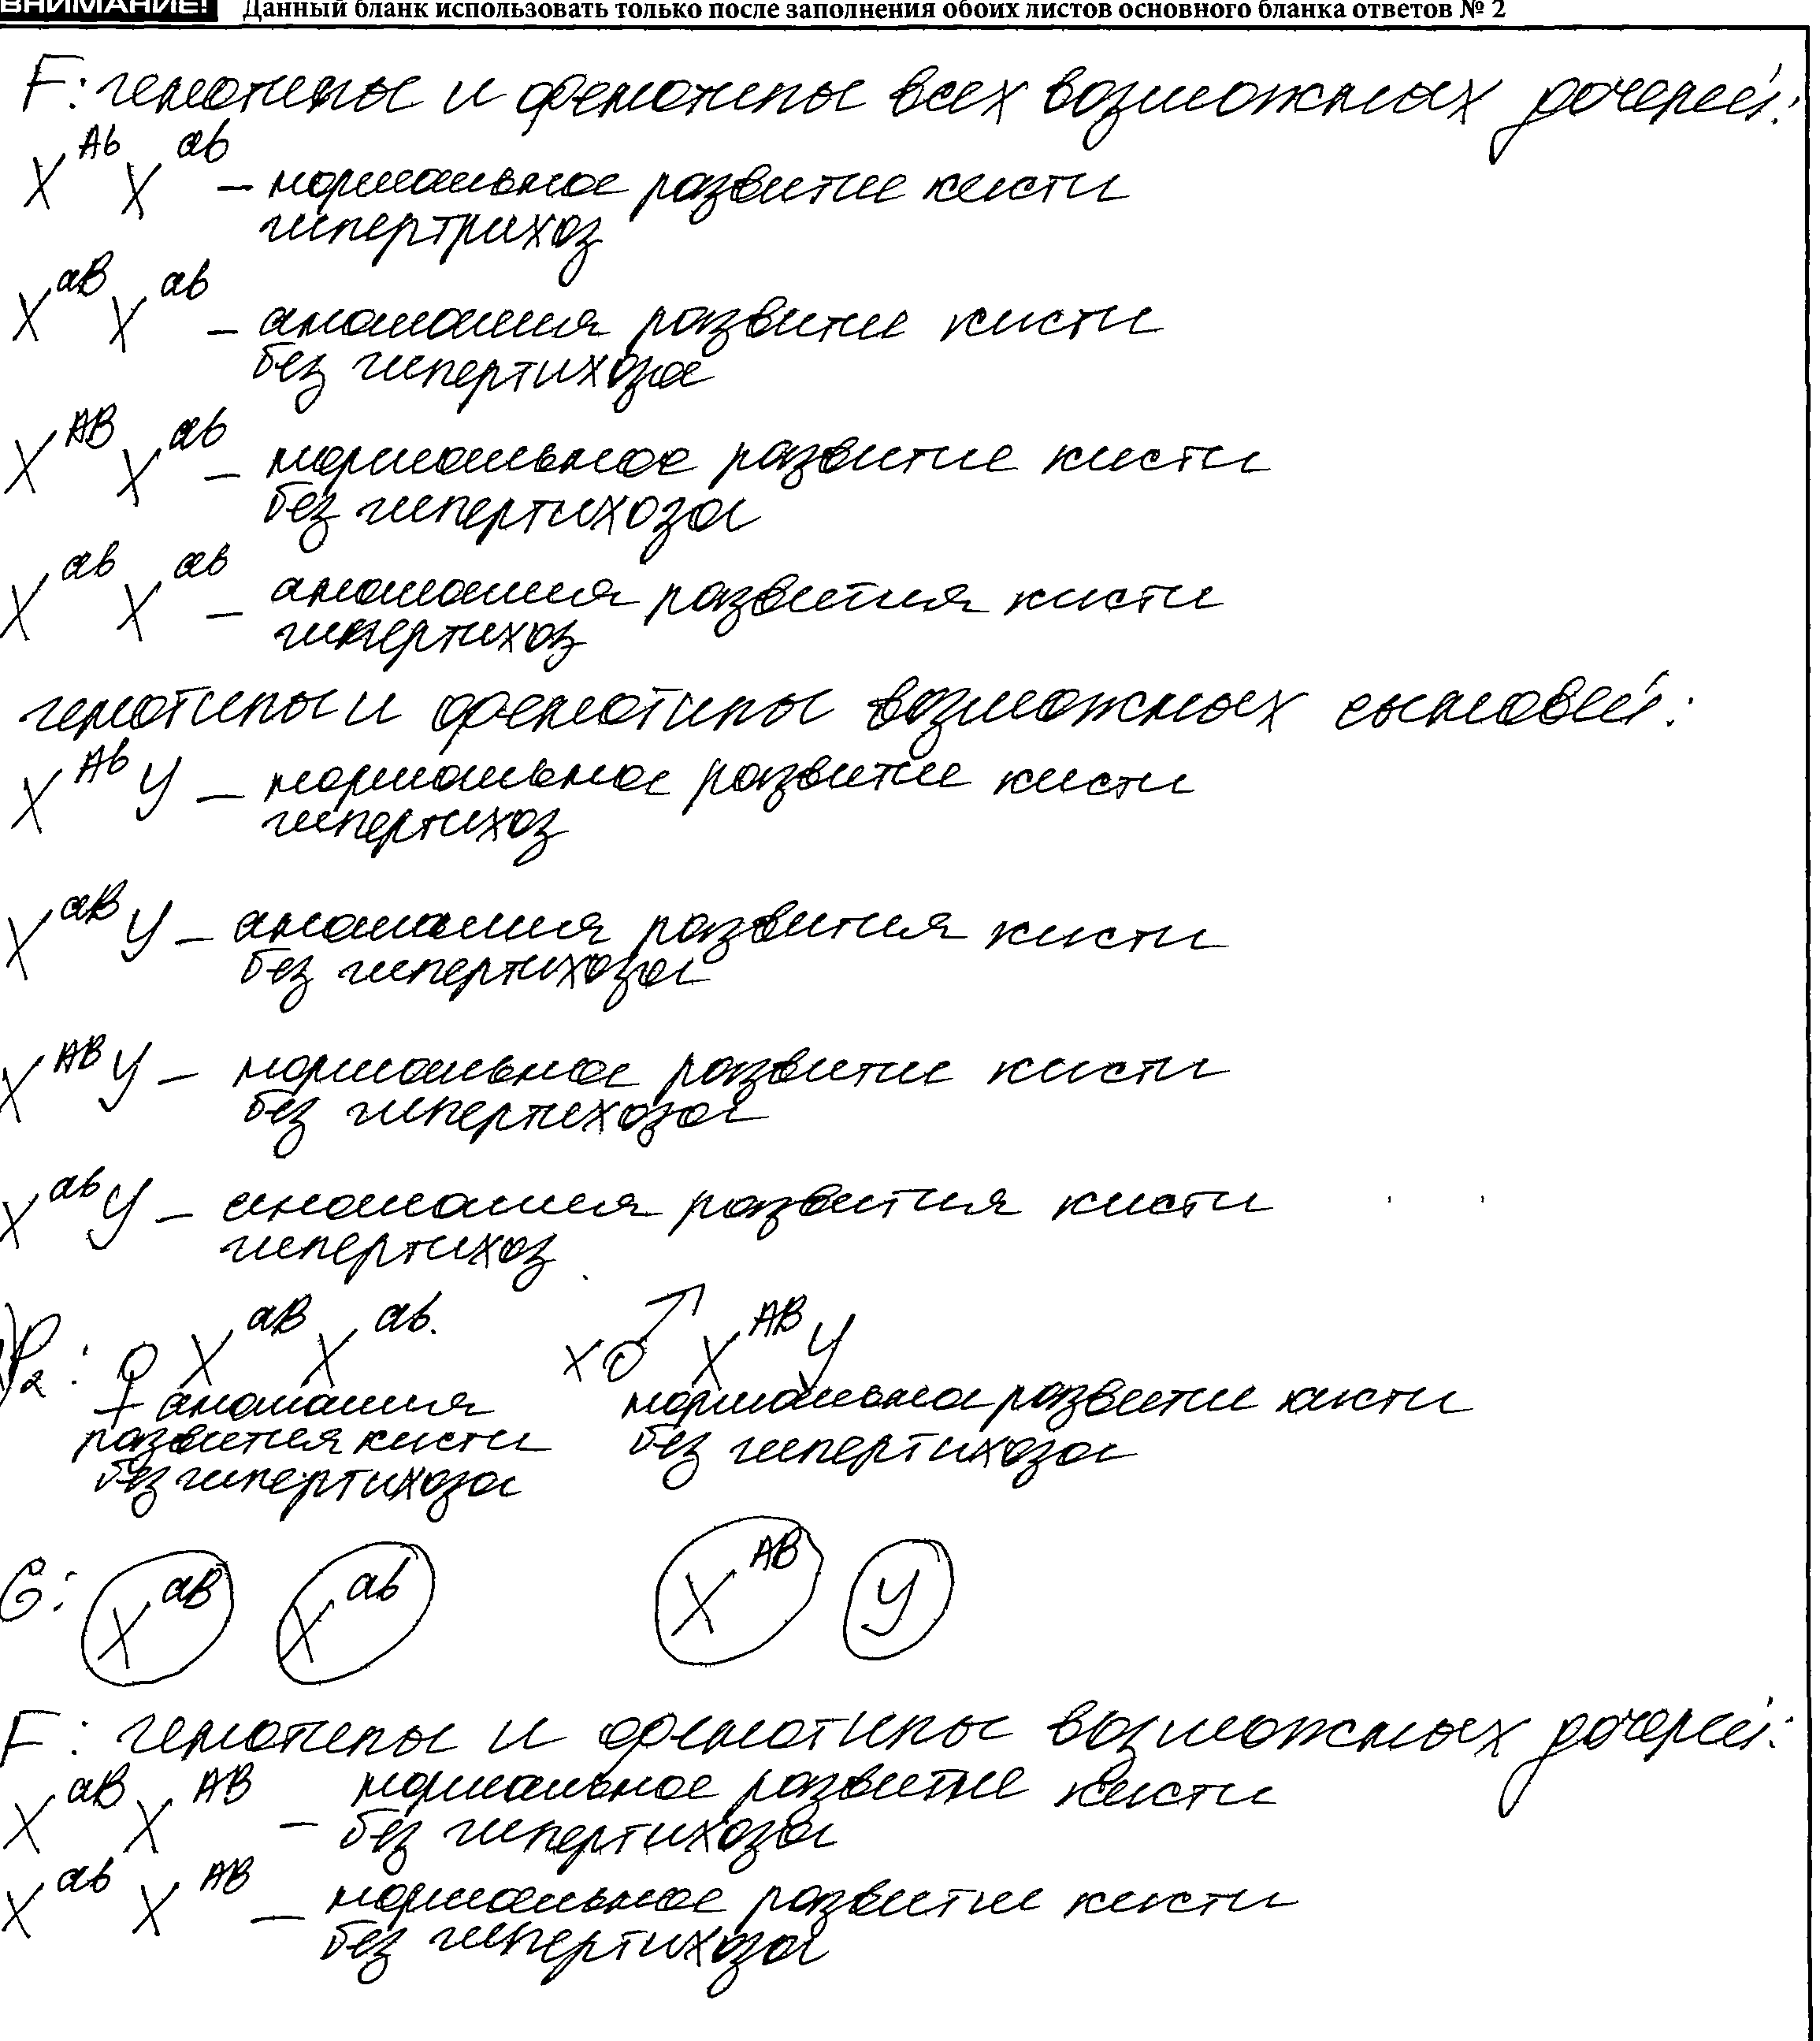 ВНИМАНИЕ! Данный бланк использовать только после заполнения обоих листов основного бланка ответов № 2
F: генотипы и фенотипы всех возможных дочерей:
X^Ab X^ab – нормальное развитие кисти
гипертрихоз
X^aB X^ab – аномалия развитие кисти
без гипертихоза
X^AB X^ab – нормальное развитие кисти
без гипертихоза
X^ab X^ab – аномалия развития кисти
гипертихоз
генотипы и фенотипы возможных сыновей:
X^Ab У – нормальное развитие кисти
гипертихоз
X^aB У – аномалия развития кисти
без гипертихоза
X^AB У – нормальное развитие кисти
без гипертихоза
X^ab У – аномалия развития кисти
гипертихоз
P₂: ♀ X^aB X^ab. x ♂ X^AB У
аномалия нормальна развитие кисти
развития кисти без гипертихоза
без гипертихоза
G: X^aB X^ab X^AB У
F: генотипы и фенотипы возможных дочерей:
X^aB X^AB – нормальное развитие кисти
без гипертихоза
X^ab X^AB – нормальное развитие кисти
без гипертихоза